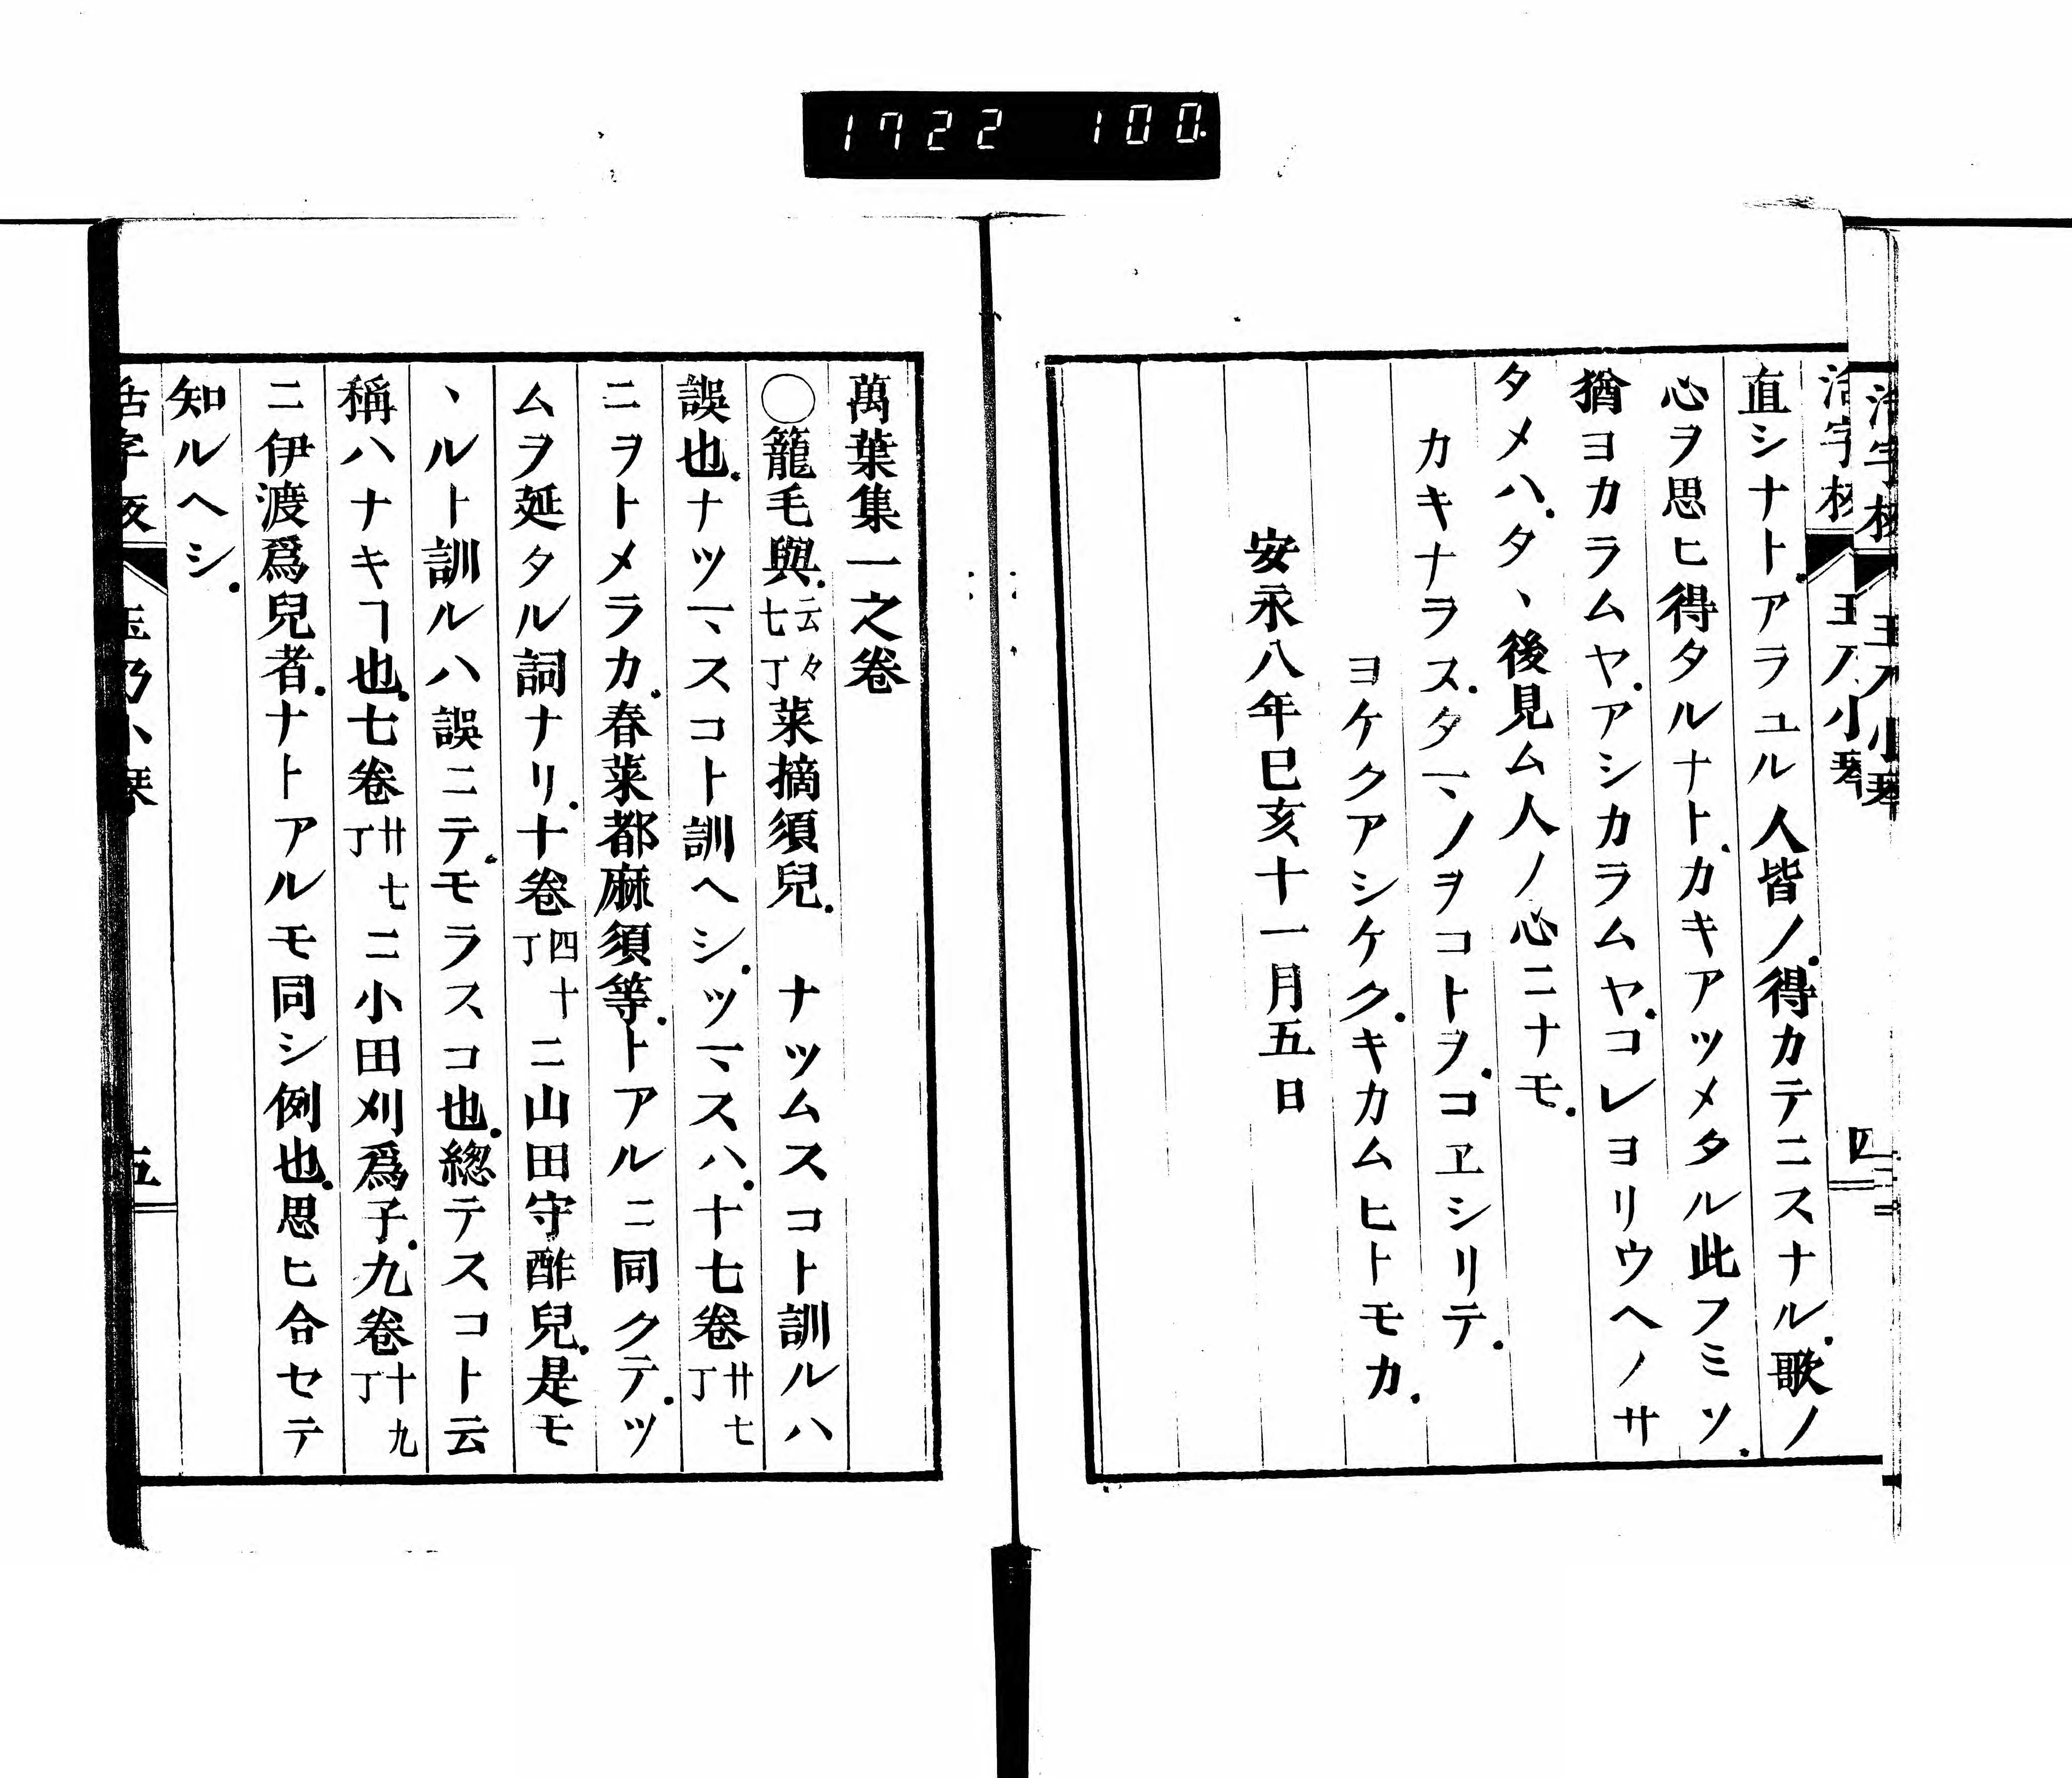 1722 100.
直シナト.アラユル人皆ノ.得カテニスナル.歌ノ
心ヲ思ヒ得タルナト.カキアツメタル此フミソ.
猶ヨカラムヤ.アシカラムヤ.コレヨリウヘノサ
タメハ.タヽ後見ム人ノ心ニナモ.
カキナラス.タマノヲコトヲ.コヱシリテ.
ヨケクアシケク.キカムヒトモカ.
安永八年巳亥十一月五日
萬葉集一之卷
〇籠毛與.云々七丁菜摘須兒. ナツムスコト訓ルハ
誤也.ナツマスコト訓ヘシ.ツマスハ.十七卷廿七丁
ニヲトメラカ.春菜都麻須等.トアルニ同クテ.ツ
ムヲ延タル詞ナリ.十卷四十丁ニ山田守酢兒.是モ
ヽルト訓ルハ誤ニテ.モラスコ也.緫テスコト云
稱ハナキヿ也.七卷廿七丁ニ小田刈爲子.九卷十九丁
ニ伊渡爲兒者.ナトアルモ同シ例也.思ヒ合セテ
知ルヘシ.